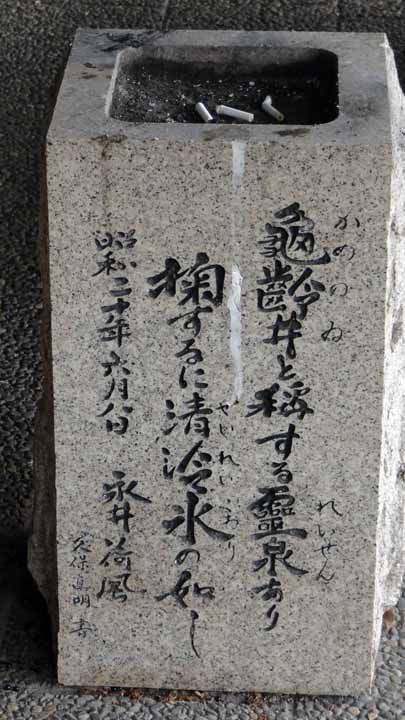 かめのゐ れいせん
龜齡井と稱する靈泉あり
せいれいこおり
掬するに清冷氷の如し
昭和二十年六月八日 永井荷風
久保 明 書